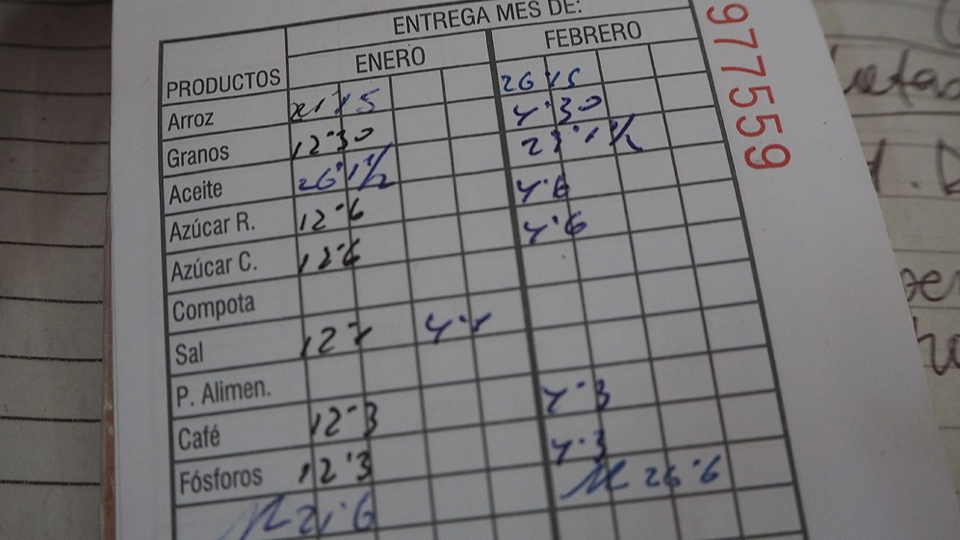 ENTREGA MES DE:
PRODUCTOS ENERO FEBRERO
Arroz 21 15 26 15
Granos 12·30 4·30
Aceite 26·1 1/2 23·1 1/2
Azúcar R. 12·6 4·6
Azúcar C. 12·6 4·6
Compota
Sal 12 1 4·1
P. Alimen.
Café 12·3 4·3
Fósforos 12·3 4·3
21·6 26·6
977559